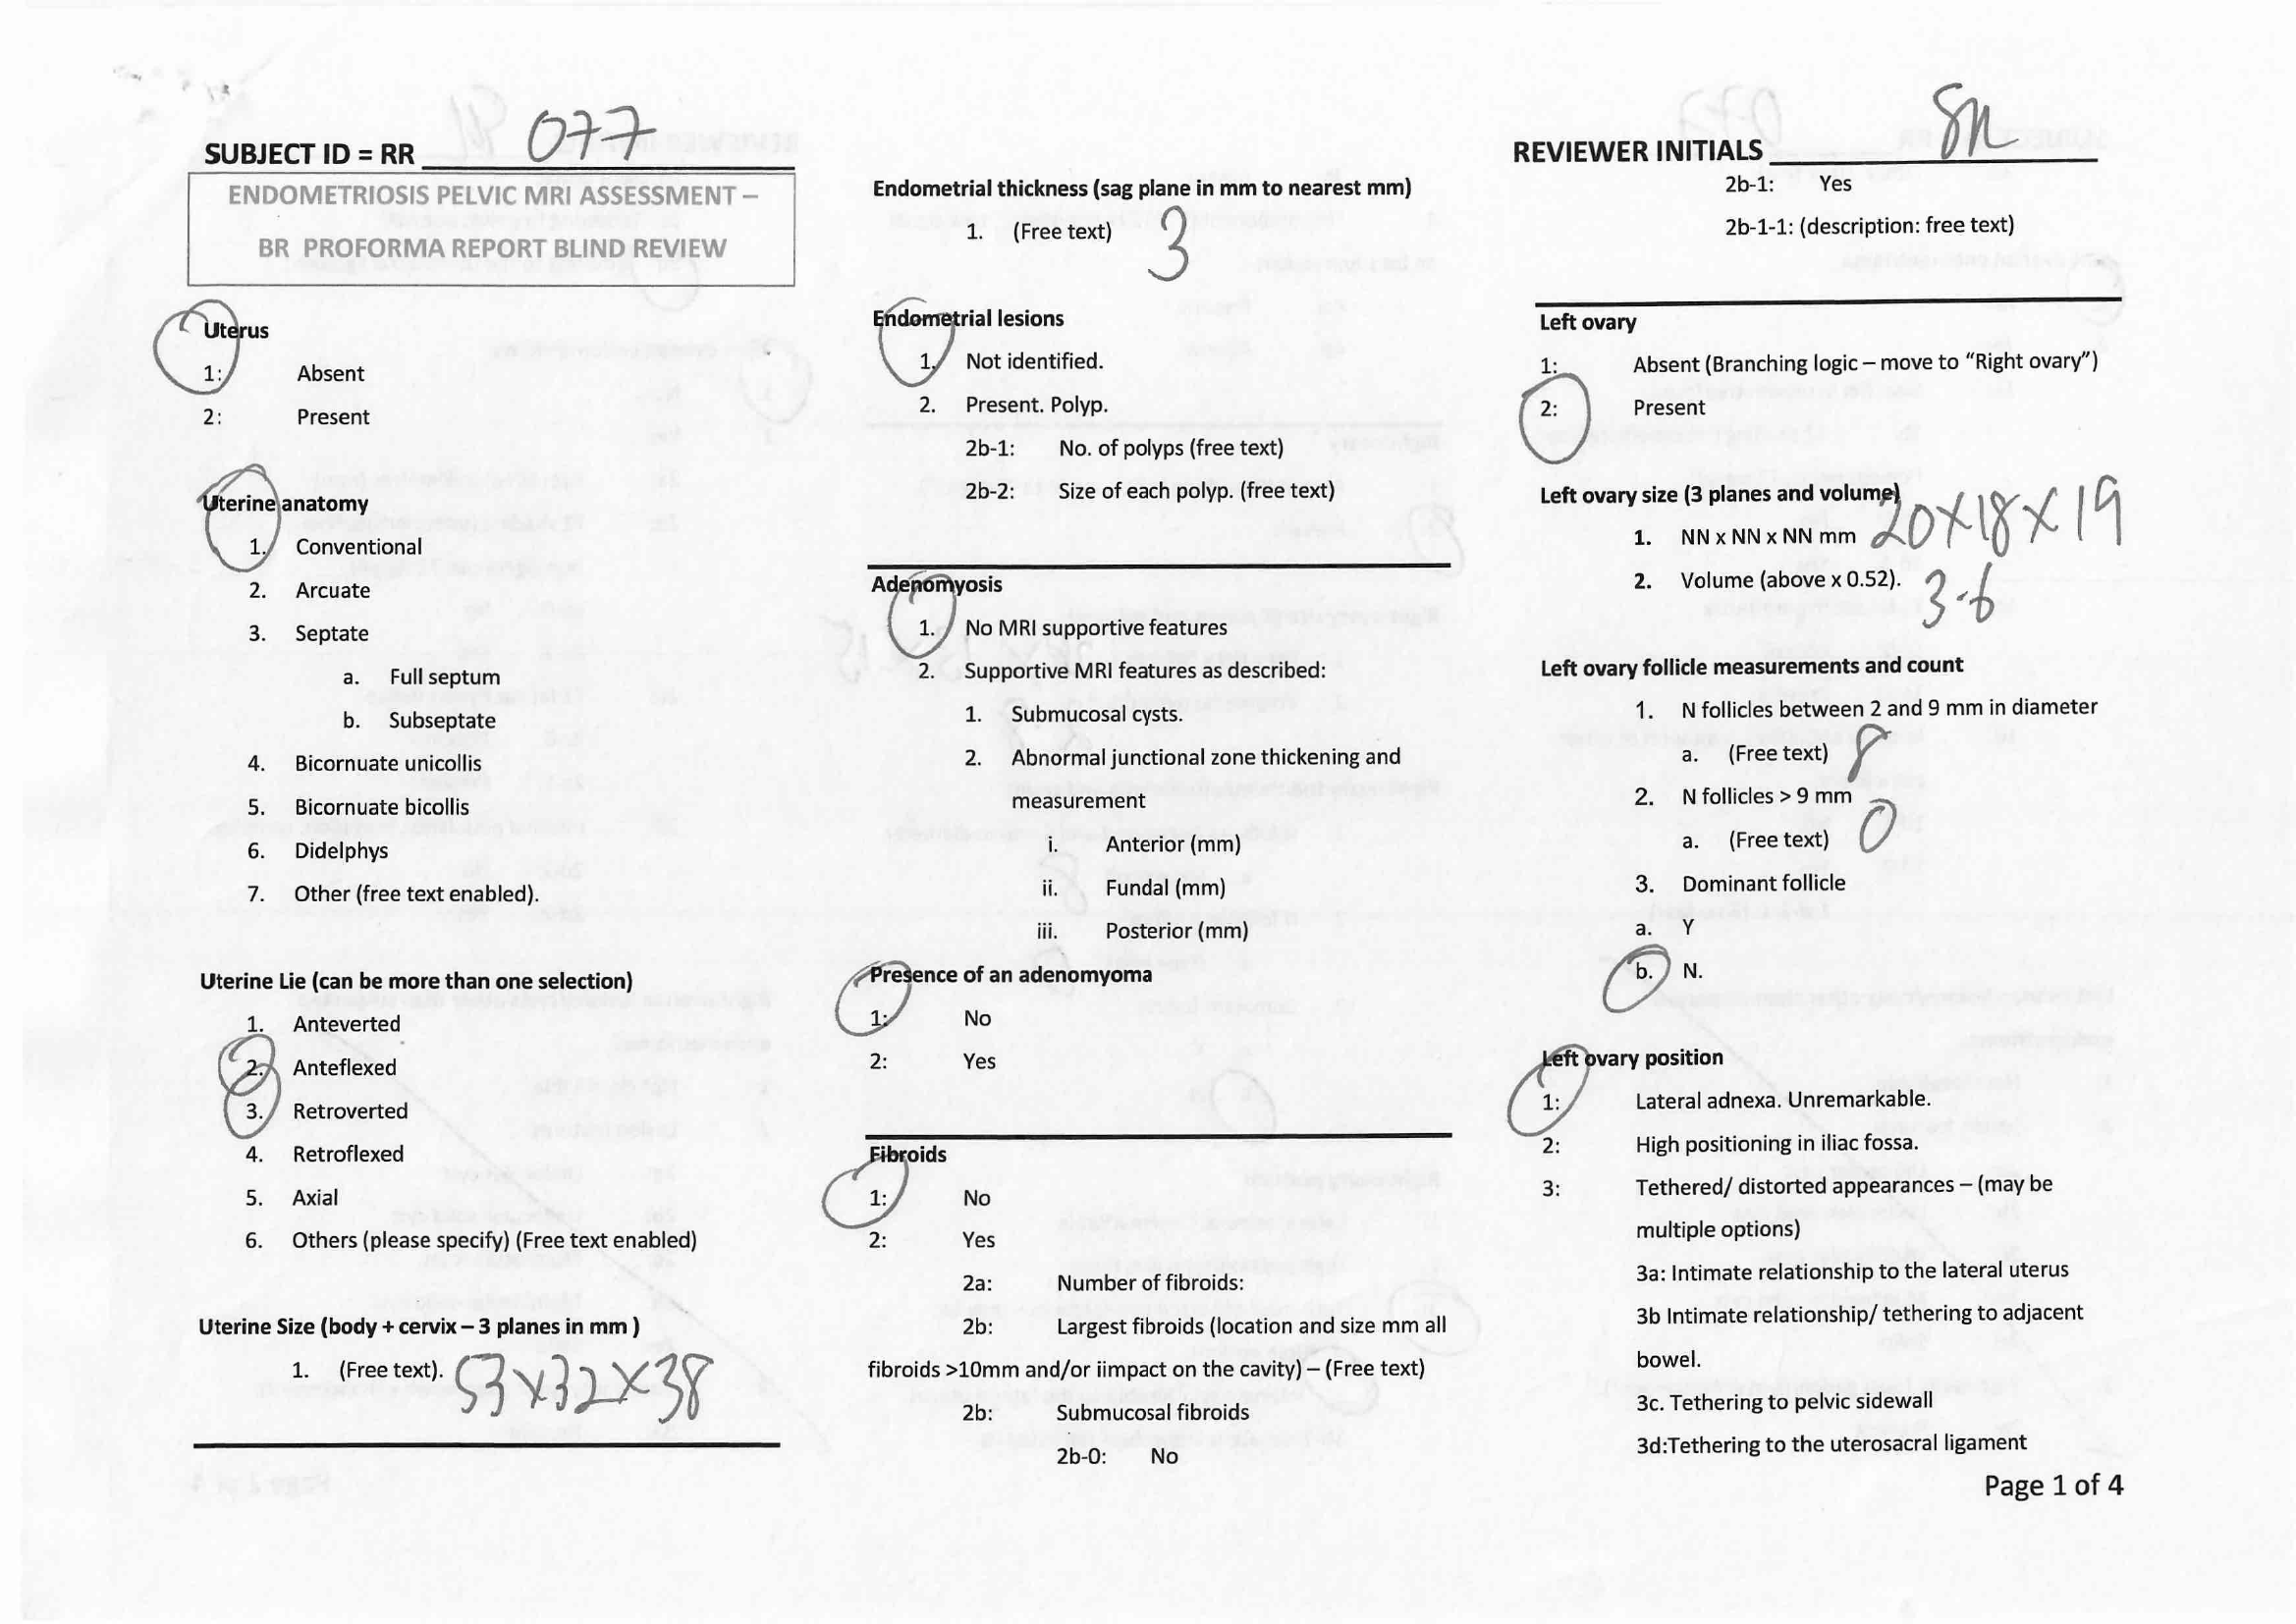 SUBJECT ID = RR 077
ENDOMETRIOSIS PELVIC MRI ASSESSMENT –
BR PROFORMA REPORT BLIND REVIEW
Uterus
1: Absent
2: Present
Uterine anatomy
1. Conventional
2. Arcuate
3. Septate
a. Full septum
b. Subseptate
4. Bicornuate unicollis
5. Bicornuate bicollis
6. Didelphys
7. Other (free text enabled).
Uterine Lie (can be more than one selection)
1. Anteverted
2. Anteflexed
3. Retroverted
4. Retroflexed
5. Axial
6. Others (please specify) (Free text enabled)
Uterine Size (body + cervix – 3 planes in mm )
1. (Free text). 53x32x38
Endometrial thickness (sag plane in mm to nearest mm)
1. (Free text) 3
Endometrial lesions
1. Not identified.
2. Present. Polyp.
2b-1: No. of polyps (free text)
2b-2: Size of each polyp. (free text)
Adenomyosis
1. No MRI supportive features
2. Supportive MRI features as described:
1. Submucosal cysts.
2. Abnormal junctional zone thickening and
measurement
i. Anterior (mm)
ii. Fundal (mm)
iii. Posterior (mm)
Presence of an adenomyoma
1: No
2: Yes
Fibroids
1: No
2: Yes
2a: Number of fibroids:
2b: Largest fibroids (location and size mm all
fibroids >10mm and/or iimpact on the cavity) – (Free text)
2b: Submucosal fibroids
2b-0: No
REVIEWER INITIALS
2b-1: Yes
2b-1-1: (description: free text)
Left ovary
1: Absent (Branching logic – move to “Right ovary”)
2: Present
Left ovary size (3 planes and volume)
1. NN x NN x NN mm 20x18x19
2. Volume (above x 0.52). 3.6
Left ovary follicle measurements and count
1. N follicles between 2 and 9 mm in diameter
a. (Free text) 8
2. N follicles > 9 mm
a. (Free text) 0
3. Dominant follicle
a. Y
b. N.
Left ovary position
1: Lateral adnexa. Unremarkable.
2: High positioning in iliac fossa.
3: Tethered/ distorted appearances – (may be
multiple options)
3a: Intimate relationship to the lateral uterus
3b Intimate relationship/ tethering to adjacent
bowel.
3c. Tethering to pelvic sidewall
3d:Tethering to the uterosacral ligament
Page 1 of 4